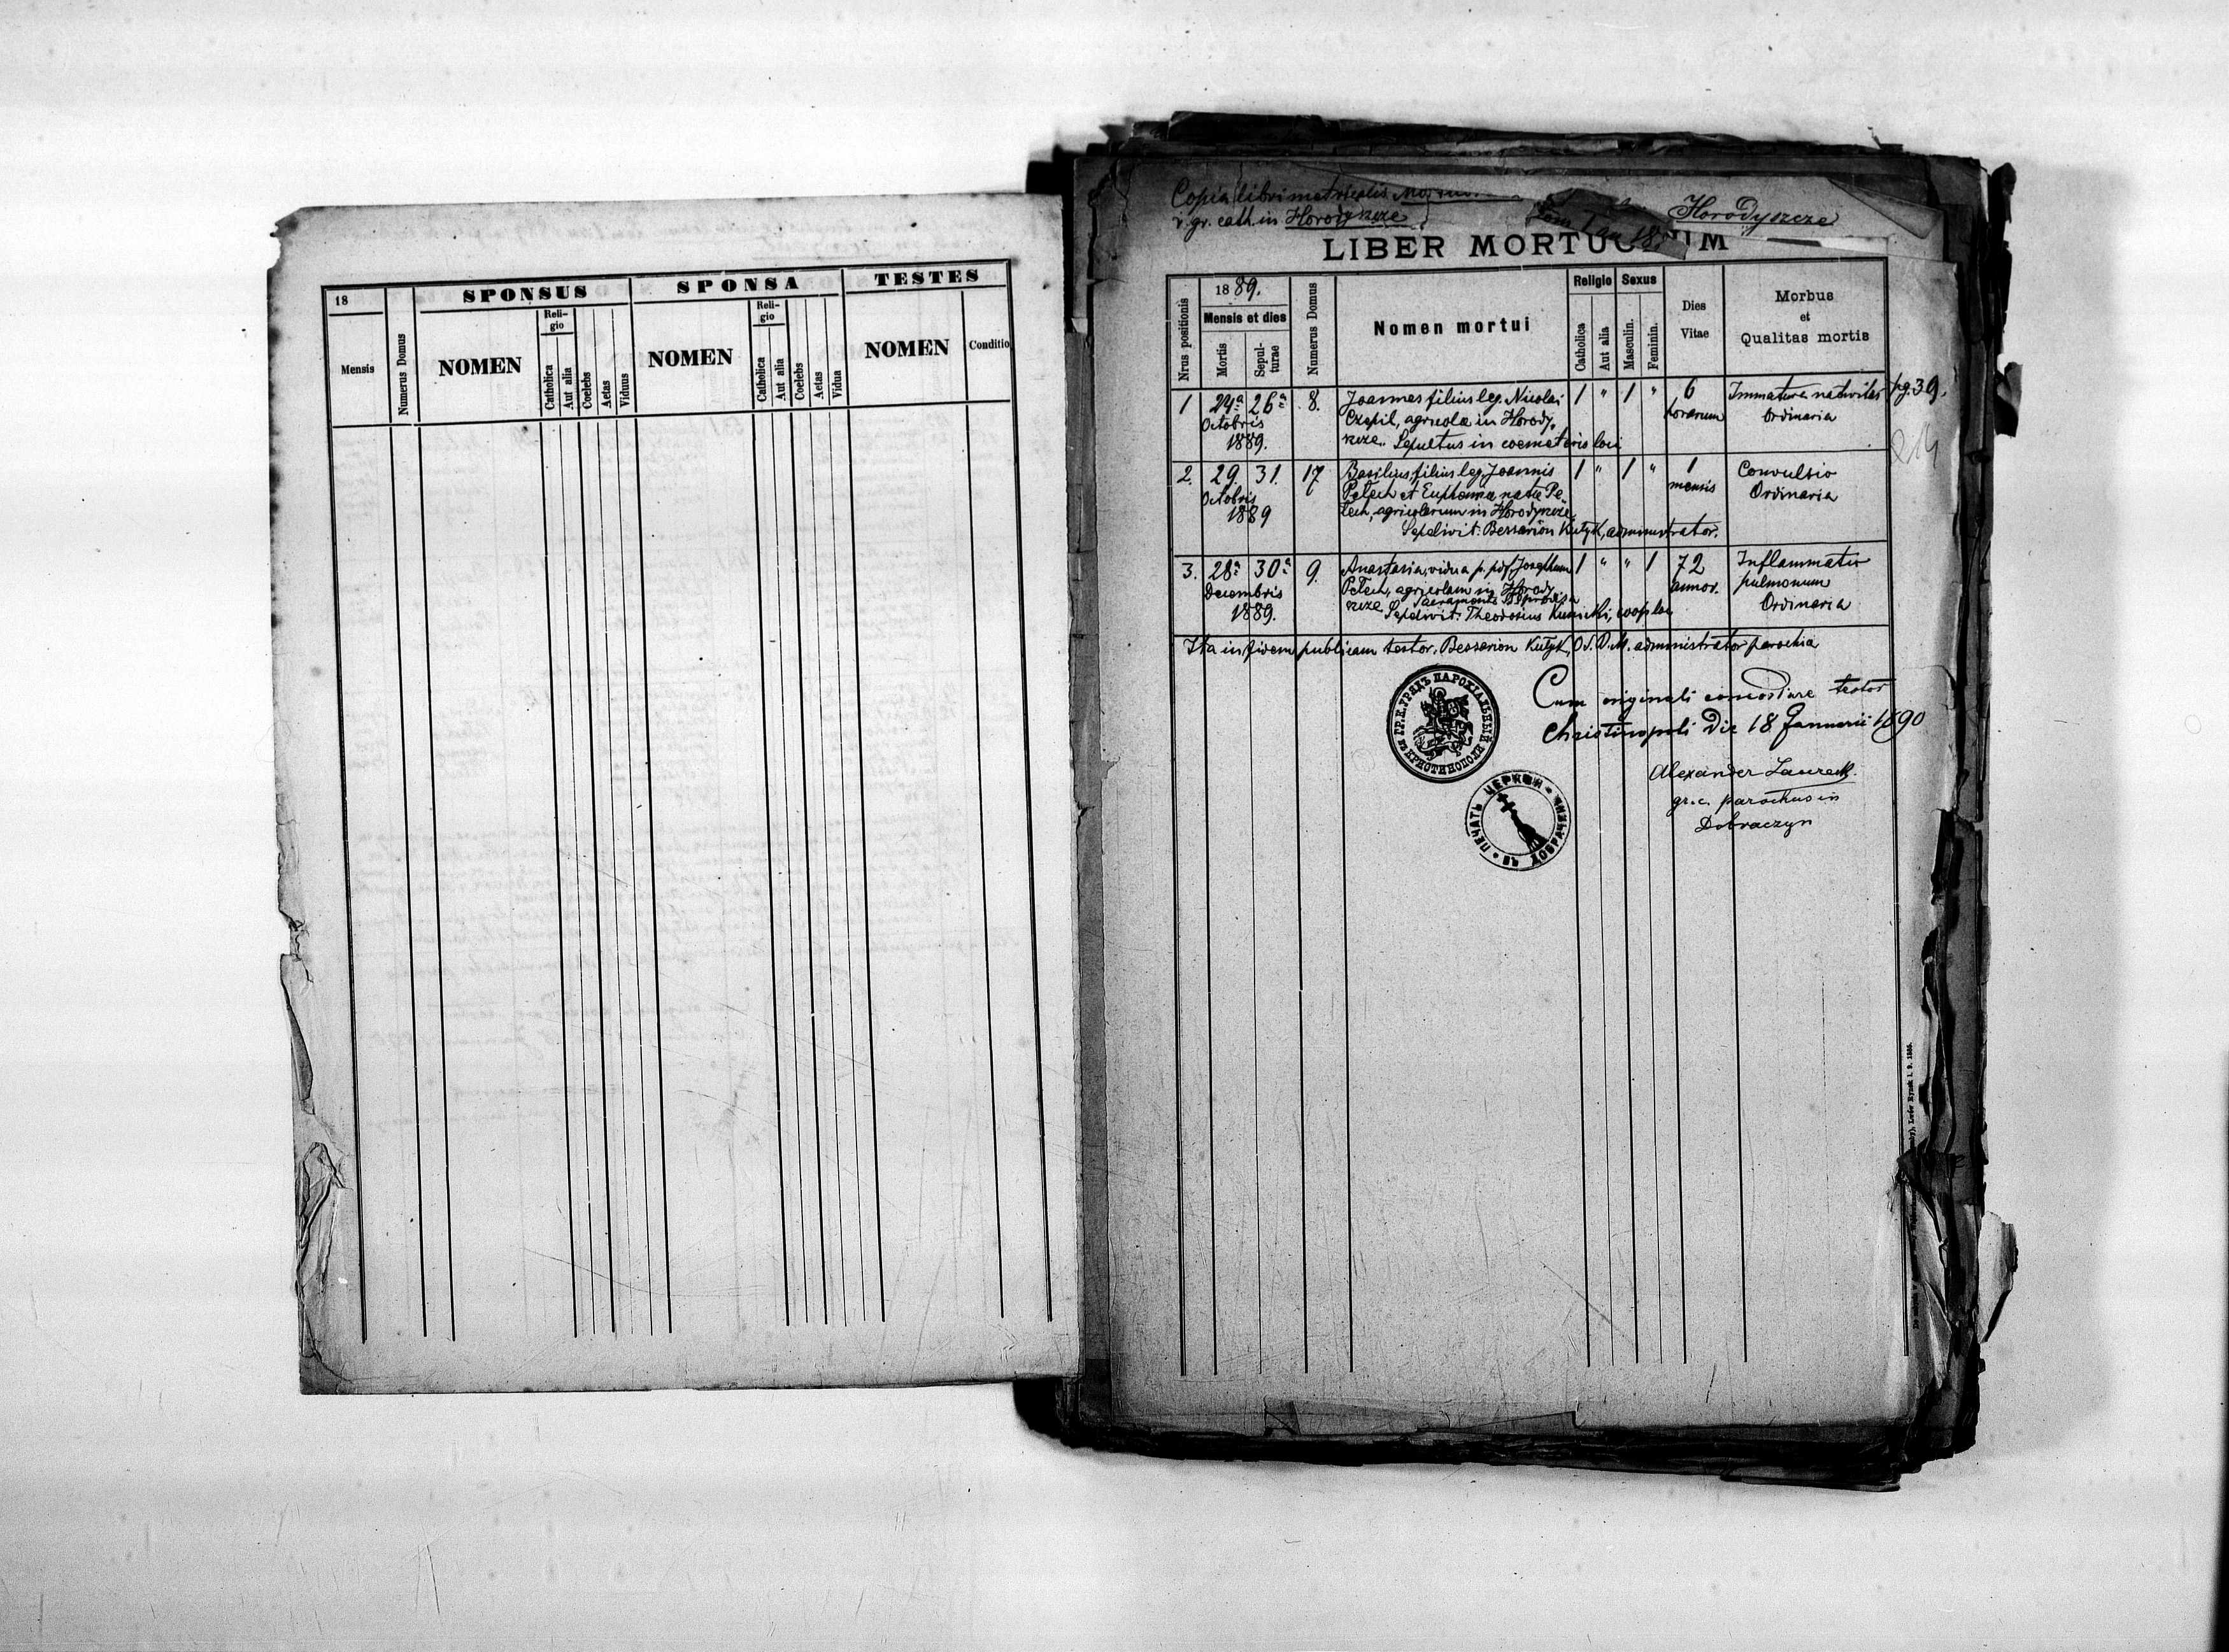 18
SPONSUS
SPONSA
TESTES
Mensis
Numerus Domus
NOMEN
Reli-
gio
Catholica
Aut alia
Coelebs
Aetas
Viduus
NOMEN
Reli-
gio
Catholica
Aut alia
Coelebs
Aetas
Vidua
NOMEN
Conditio
Copia libri metricalis
r. gr. cath. in Horodyszcze
Horodyszcze
LIBER MORTUORUM
Nrus positionis
1889.
Mensis et dies
Mortis
Sepul-
turae
Numerus Domus
Nomen mortui
Religio
Catholica
Aut alia
Sexus
Masculin.
Feminin.
Dies
Vitae
Morbus
et
Qualitas mortis
1 24ª 26ª 8. Joannes filius leg. Nicolai 1 " 1 " 6 Immatura nativitas pg. 39.
Octobris agricolae in Horody- horarum Ordinaria
1889. szcze. Sepultus in coemeterio loci
214
2. 29. 31. 17 Basilius, filius leg. Joannis 1 " 1 " 1 Convulsio
Octobris Petech et natae Pe- mensis Ordinaria
1889 tech, agricolarum in Horodyszcze.
Sepelivit: Bessarion Kutyk, administrator.
3. 28ª 30ª 9. Anastasia, vidua p. Josephum 1 " " 1 72 Inflammatio
Decembris Petech, agricolam in Horody- annor. pulmonum
1889. szcze. Ordinaria
Sepelivit: Theodosius
Ita in fidem publicam testor. Bessarion Kutyk, O. S. B. M. administrator parochiae
ГР. К. УРЯДЪ ПАРОХІАЛЬНЫЙ въ КРИСТИНОПОЛИ
Cum originali concordare testor
Christinopoli Die 18 Januarii 1890
ПЕЧАТЬ ЦЕРКВИ въ ДОБРАЧИНѢ
Alexander
gr. c. parochus in
Dobraczyn